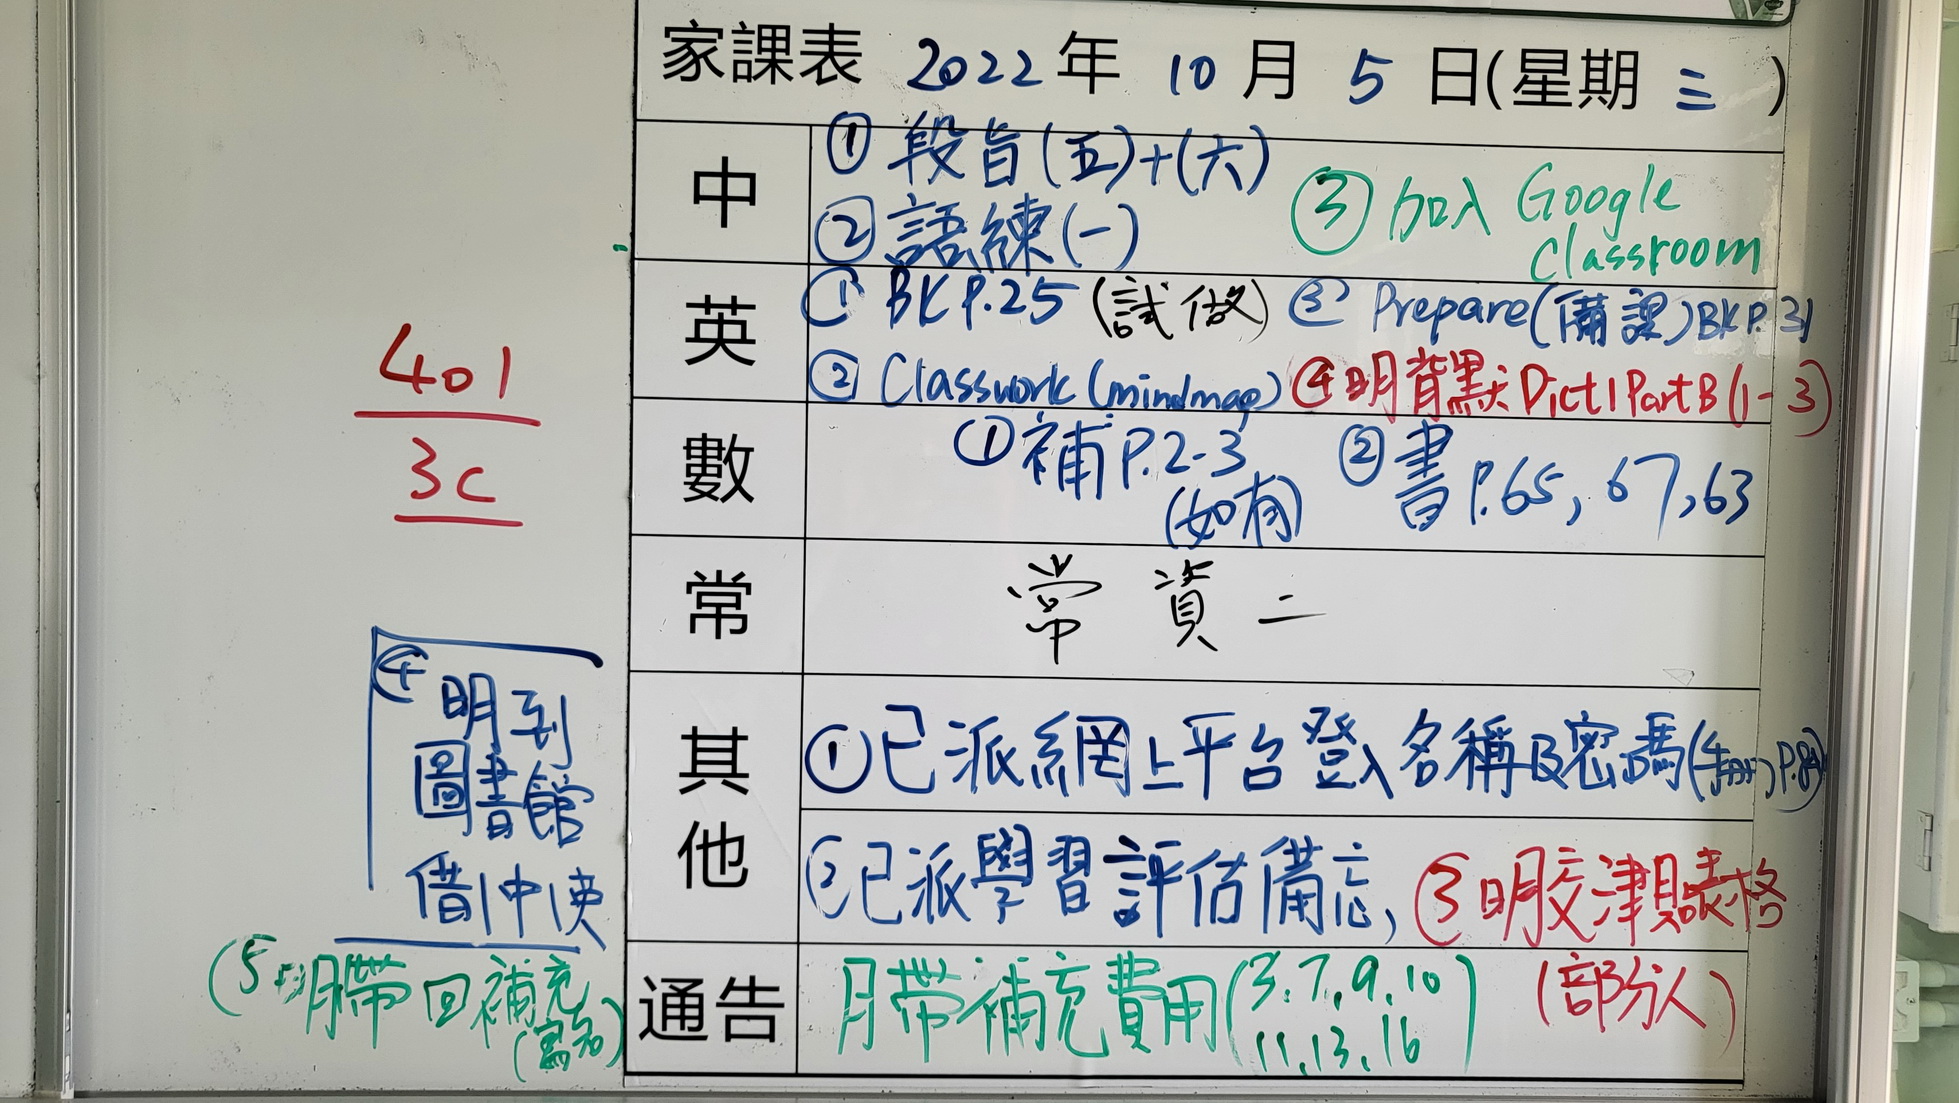 家課表 2022年 10月 5日(星期 三 )
中
① 段旨(五)+(六)
② 語練(一)
③ 加入 Google
Classroom
英
① BK P.25 (試做) ③ Prepare(備課) BK P.31
② Classwork (mindmap) ④ 明背默 Dict 1 Part B (1-3)
數
① 補 P.2-3
(如有)
② 書 P.65, 67, 63
常
常 資 二
其他
① 已派網上平台登入名稱及密碼(手冊P.84)
② 已派學習評估備忘,
③ 明交津貼表格
(部分人)
通告
月帶補充費用(3.7.9.10
11.13.16)
401
3C
④ 明到
圖書館
借
⑤ 明帶回補充